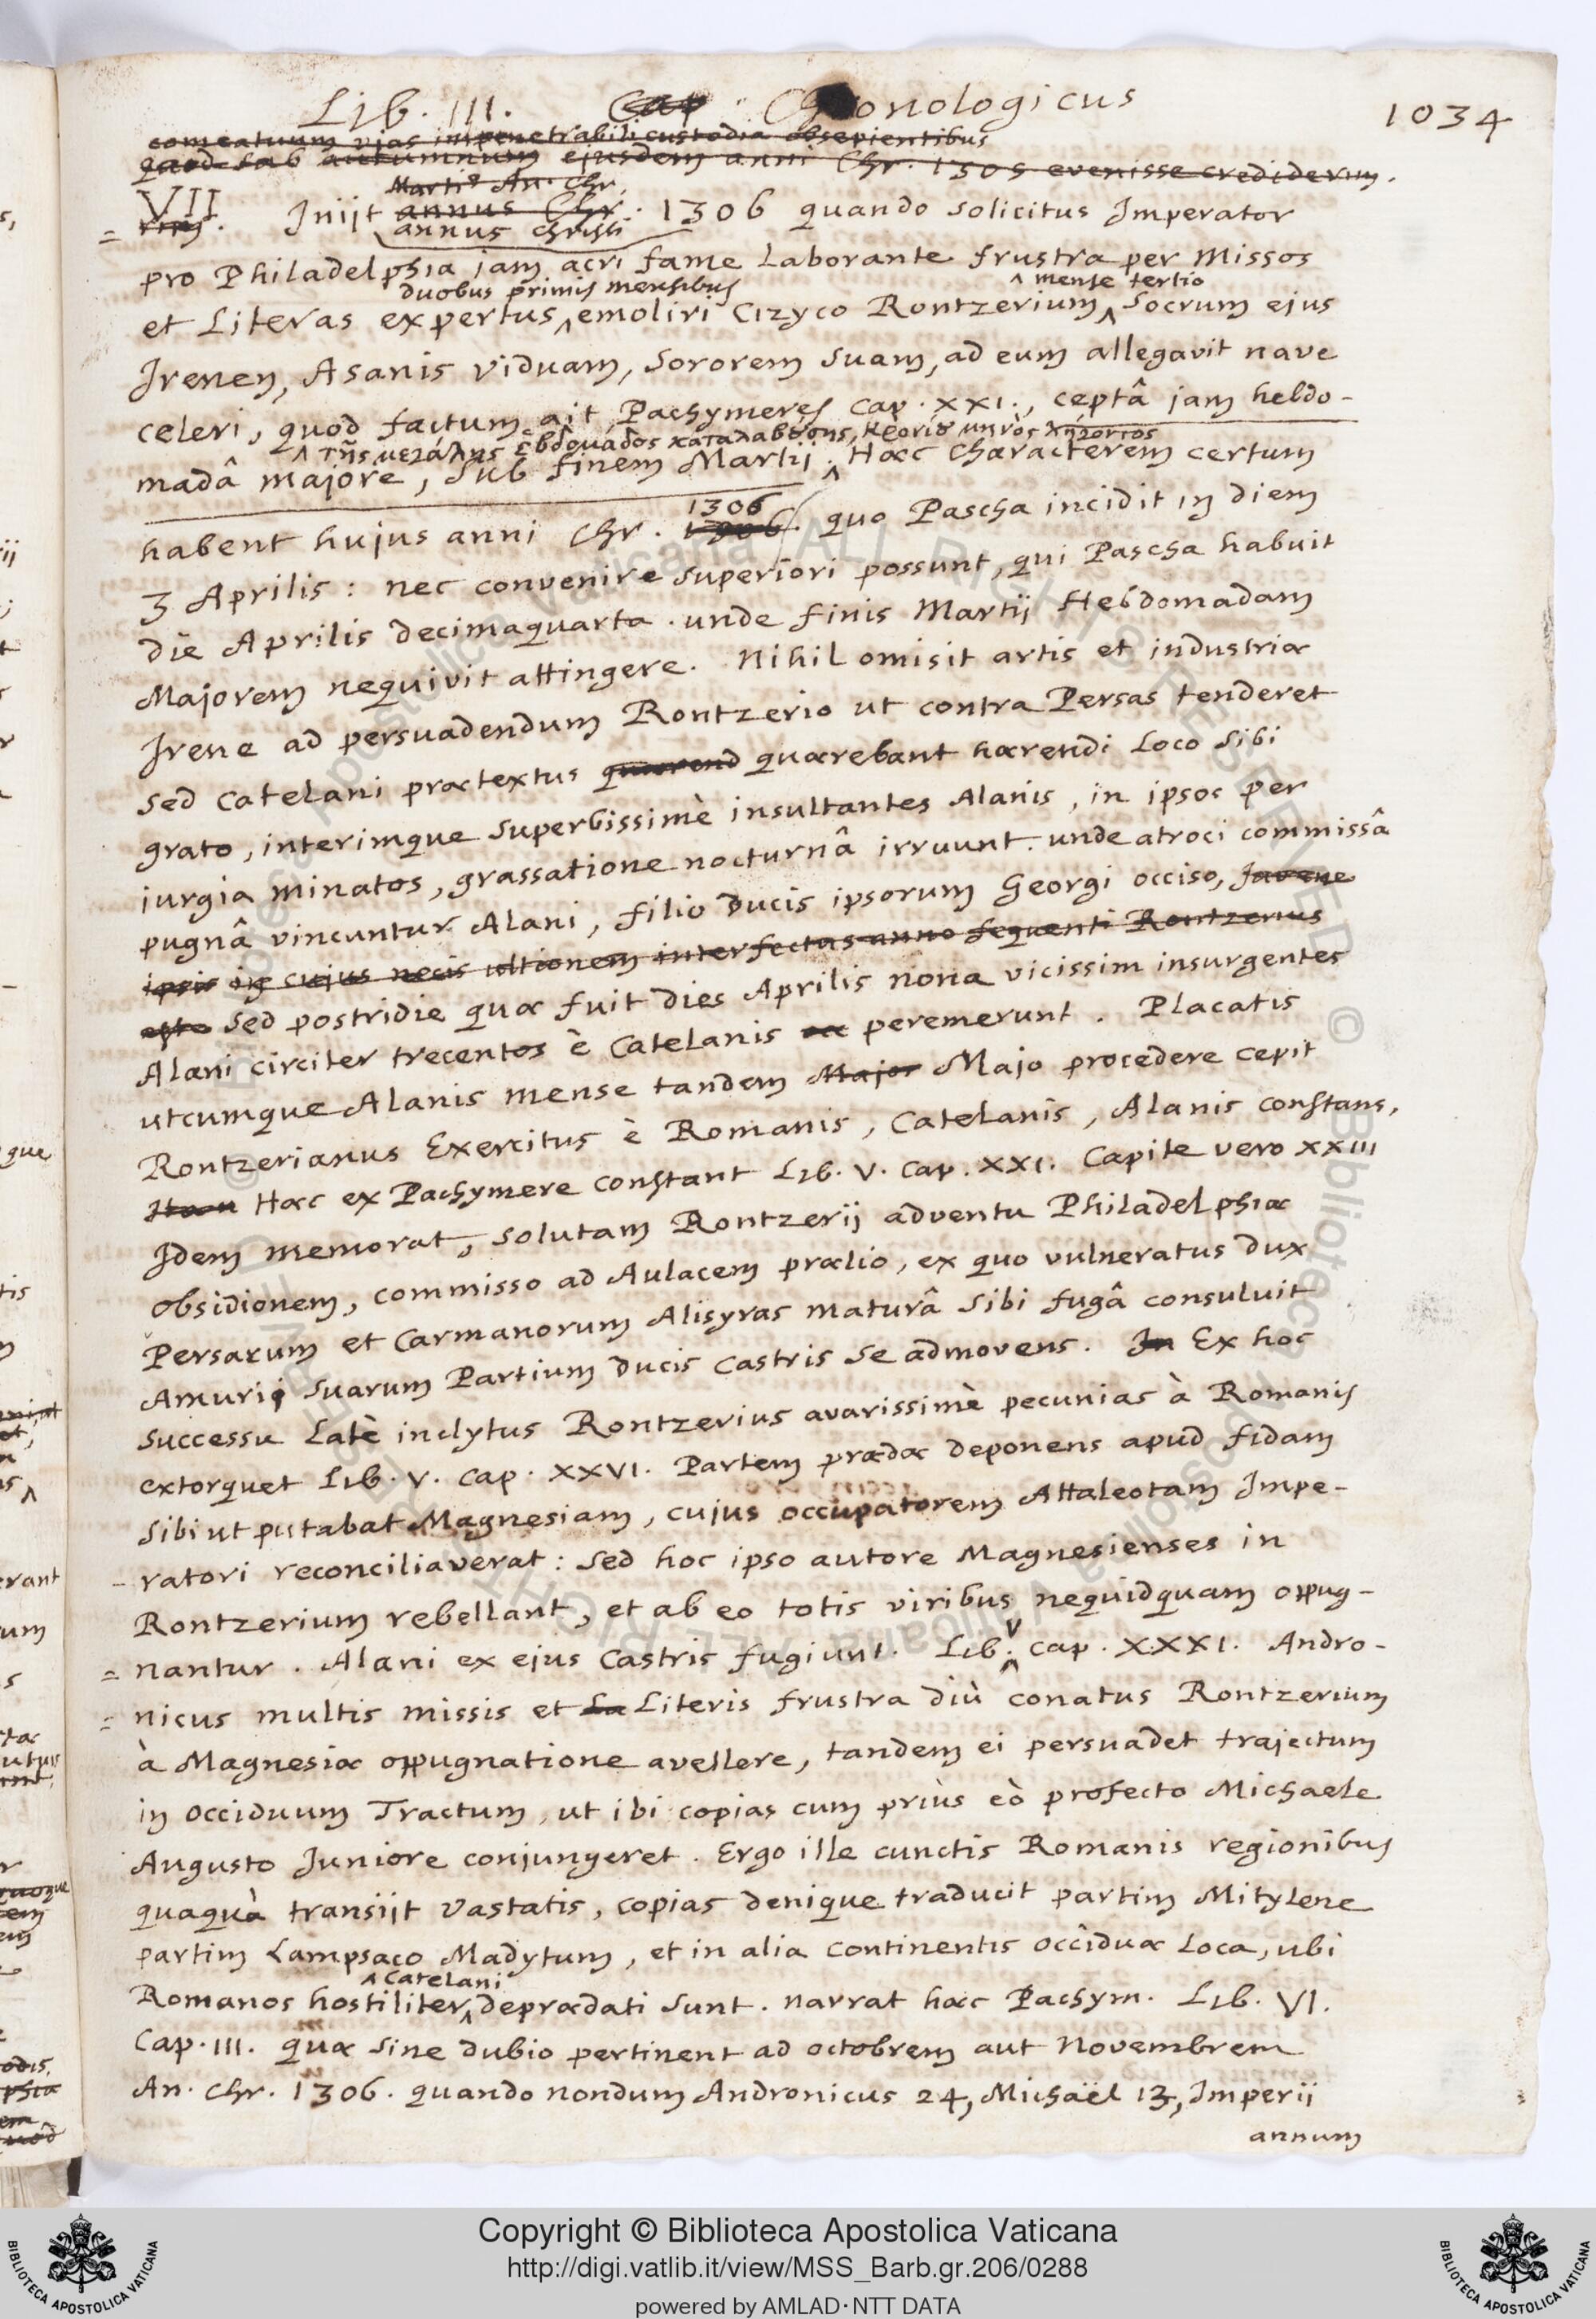 Lib. III. Cap Chronologicus 1034
comeatuum vias impenetrabili custodia obsepientibus
quod sub autumnum ejusdem anni Chr. 1305 evenisse crediderim.
Martio An. Chr.
VII. Inijt annus Chr. 1306 quando solicitus Imperator
annus Christi
pro Philadelphia jam acri fame laborante frustra per missos
duobus primis mensibus ^ mense tertio
et Literas expertus ^ emoliri Cizyco Rontzerium ^ Socrum ejus
Irenen, Asanis viduam, Sororem suam, ad eum allegavit nave
celeri, quod factum ait Pachymeres Cap. XXI., ceptâ jam heldo-
^ τῆς μεγάλης ἑβδομάδος καταλαβούσης, Κρονίου μηνὸς λήγοντος
madâ majore, sub finem Martij ^. Hæc characterem certum
habent hujus anni Chr. 1306 1306. quo Pascha incidit in diem
3 Aprilis: nec convenire superiori possunt, qui Pascha habuit
die Aprilis decimaquarta. unde finis Martij Hebdomadam
Majorem nequivit attingere. Nihil omisit artis et industriæ
Irene ad persuadendum Rontzerio ut contra Persas tenderet
sed Catelani prætextus quærend quærebant hærendi loco sibi
grato, interimque superbissimè insultantes Alanis, in ipsos per
iurgia minatos, grassatione nocturnâ irruunt. unde atroci commissâ
pugnâ vincuntur Alani, filio Ducis ipsorum Georgi occiso, Iuvene
ipsis in cujus necis ultionem interfectus anno sequenti Rontzerius
Sed postridie quæ fuit dies Aprilis nona vicissim insurgentes
Alani circiter trecentos è Catelanis peremerunt. Placatis
utcumque Alanis mense tandem Major Majo procedere cepit
Rontzerianus Exercitus è Romanis, Catelanis, Alanis constans,
Hæc ex Pachymere constant Lib. V. Cap. XXI. Capite vero XXIII
Idem memorat, solutam Rontzerij adventu Philadelphiæ
obsidionem, commisso ad Aulacem prælio, ex quo vulneratus dux
Persarum et Carmanorum Alisyras maturâ sibi fugâ consuluit
Amurij suarum Partium Ducis Castris se admovens. In Ex hoc
successu latè inclytus Rontzerius avarissimè pecunias à Romanis
extorquet Lib. V. Cap. XXVI. Partem prædæ deponens apud fidam
sibi ut putabat Magnesiam, cujus occupatorem Attaleotam Impe-
ratori reconciliaverat: sed hoc ipso autore Magnesienses in
Rontzerium rebellant, et ab eo totis viribus nequidquam oppug-
nantur. Alani ex ejus Castris fugiunt. Lib. ^V Cap. XXXI. Andro-
nicus multis missis et La Literis frustra diù conatus Rontzerium
à Magnesiæ oppugnatione avellere, tandem ei persuadet trajectum
in Occiduum Tractum, ut ibi copias cum priùs eò profecto Michaele
Augusto Juniore conjungeret. Ergo ille cunctis Romanis regionibus
quaquà transijt vastatis, copias denique traducit partim Mitylene
partim Lampsaco Madytum, et in alia continentis occiduæ loca, ubi
^ Catelani
Romanos hostiliter ^ deprædati sunt. narrat hæc Pachym. Lib. VI.
Cap. III. quæ sine dubio pertinent ad octobrem aut Novembrem
An. Chr. 1306. quando nondum Andronicus 24, Michaël 13, Imperii
annum
Copyright © Biblioteca Apostolica Vaticana
http://digi.vatlib.it/view/MSS_Barb.gr.206/0288
powered by AMLAD·NTT DATA
BIBLIOTECA APOSTOLICA VATICANA
BIBLIOTECA APOSTOLICA VATICANA